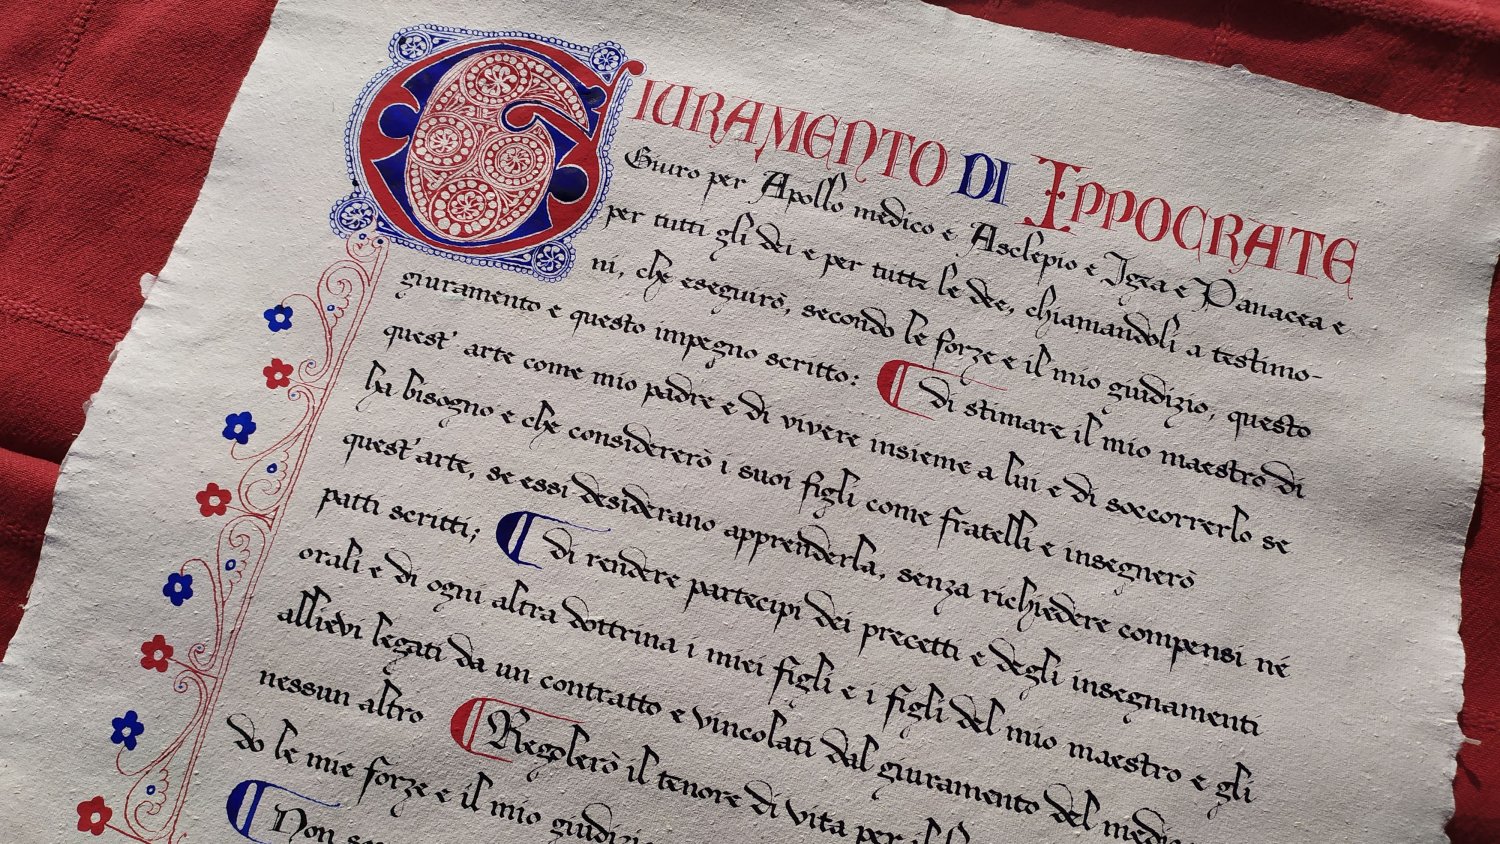 GIURAMENTO DI IPPOCRATE
Giuro per Apollo medico e Asclepio e Igea e Panacea e
per tutti gli dei e per tutte le dee, chiamandoli a testimo-
ni, che eseguirò, secondo le forze e il mio giudizio, questo
giuramento e questo impegno scritto: di stimare il mio maestro di
quest' arte come mio padre e di vivere insieme a lui e di soccorrerlo se
ha bisogno e che considererò i suoi figli come fratelli e insegnerò
quest'arte, se essi desiderano apprenderla, senza richiedere compensi né
patti scritti; di rendere partecipi dei precetti e degli insegnamenti
orali e di ogni altra dottrina i miei figli e i figli del mio maestro e gli
allievi legati da un contratto e vincolati dal giuramento del
nessun altro Regolerò il tenore di vita per il
do le mie forze e il mio
Non